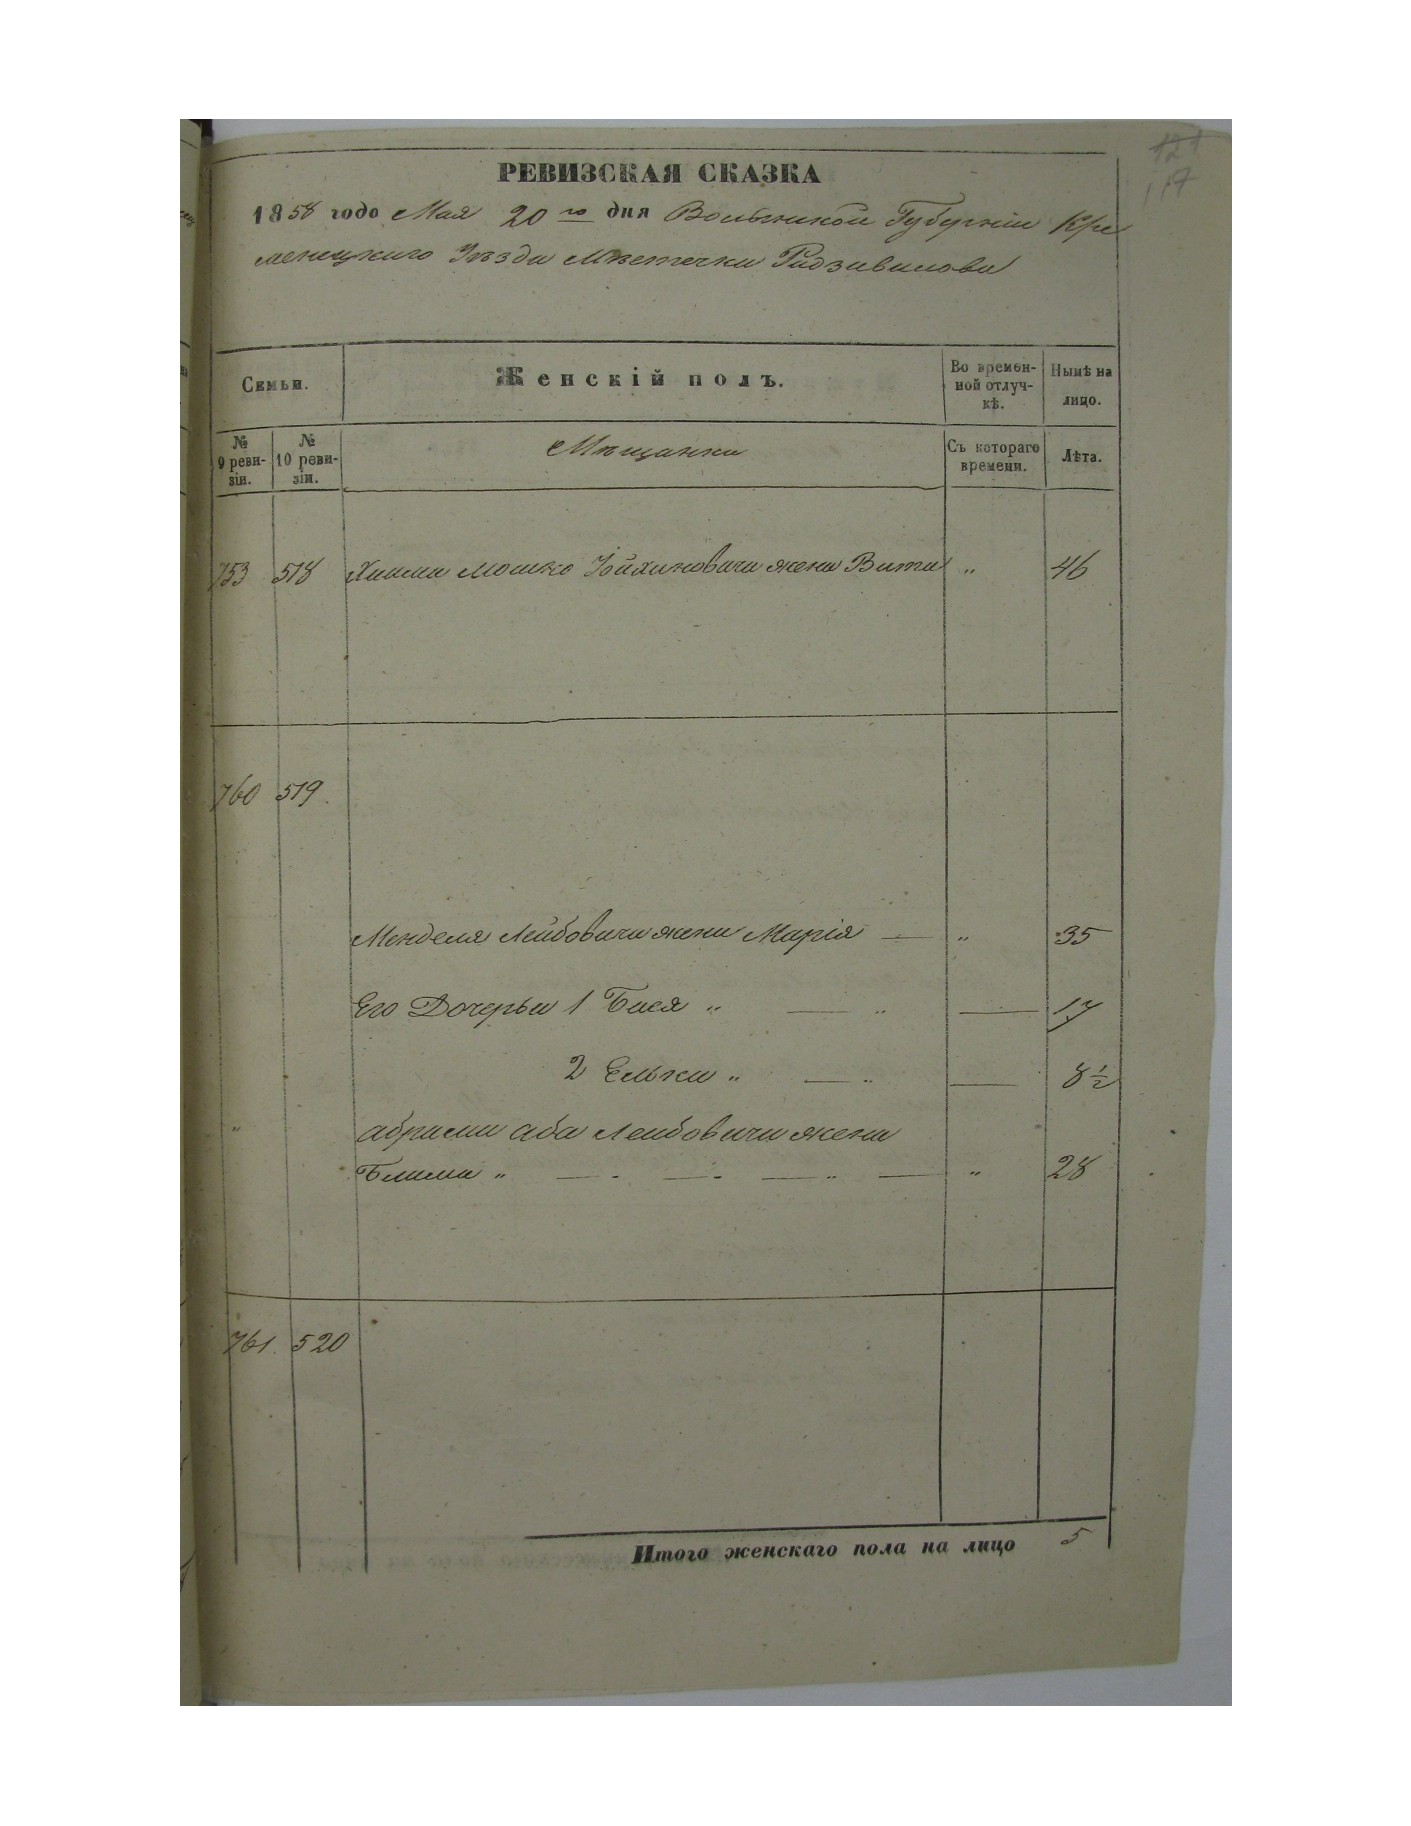 121
117
РЕВИЗСКАЯ СКАЗКА
1858 года Мая 20го дня Волынской Губерніи Кре
менецкаго Уѣзда Мѣстечка Радзивилова
Семьи.
Женскій полъ.
Во времен-
ной отлуч-
кѣ.
Нынѣ на
лицо.
№
9 реви-
зіи.
№
10 реви-
зіи.
Мѣщанки
Съ котораго
времени.
Лѣта.
753 518 Хаима Мошко Іойхиновича жена Вита " 46
760 519.
Менделя Лейбовича жена Марія — " 35
Его Дочерьи 1 Бася " — " — 17
2 Елька " — " — 8½
" абрама аба Лейбовича жена
Блима " — " — " — " — " 28
761. 520
Итого женскаго пола на лицо 5